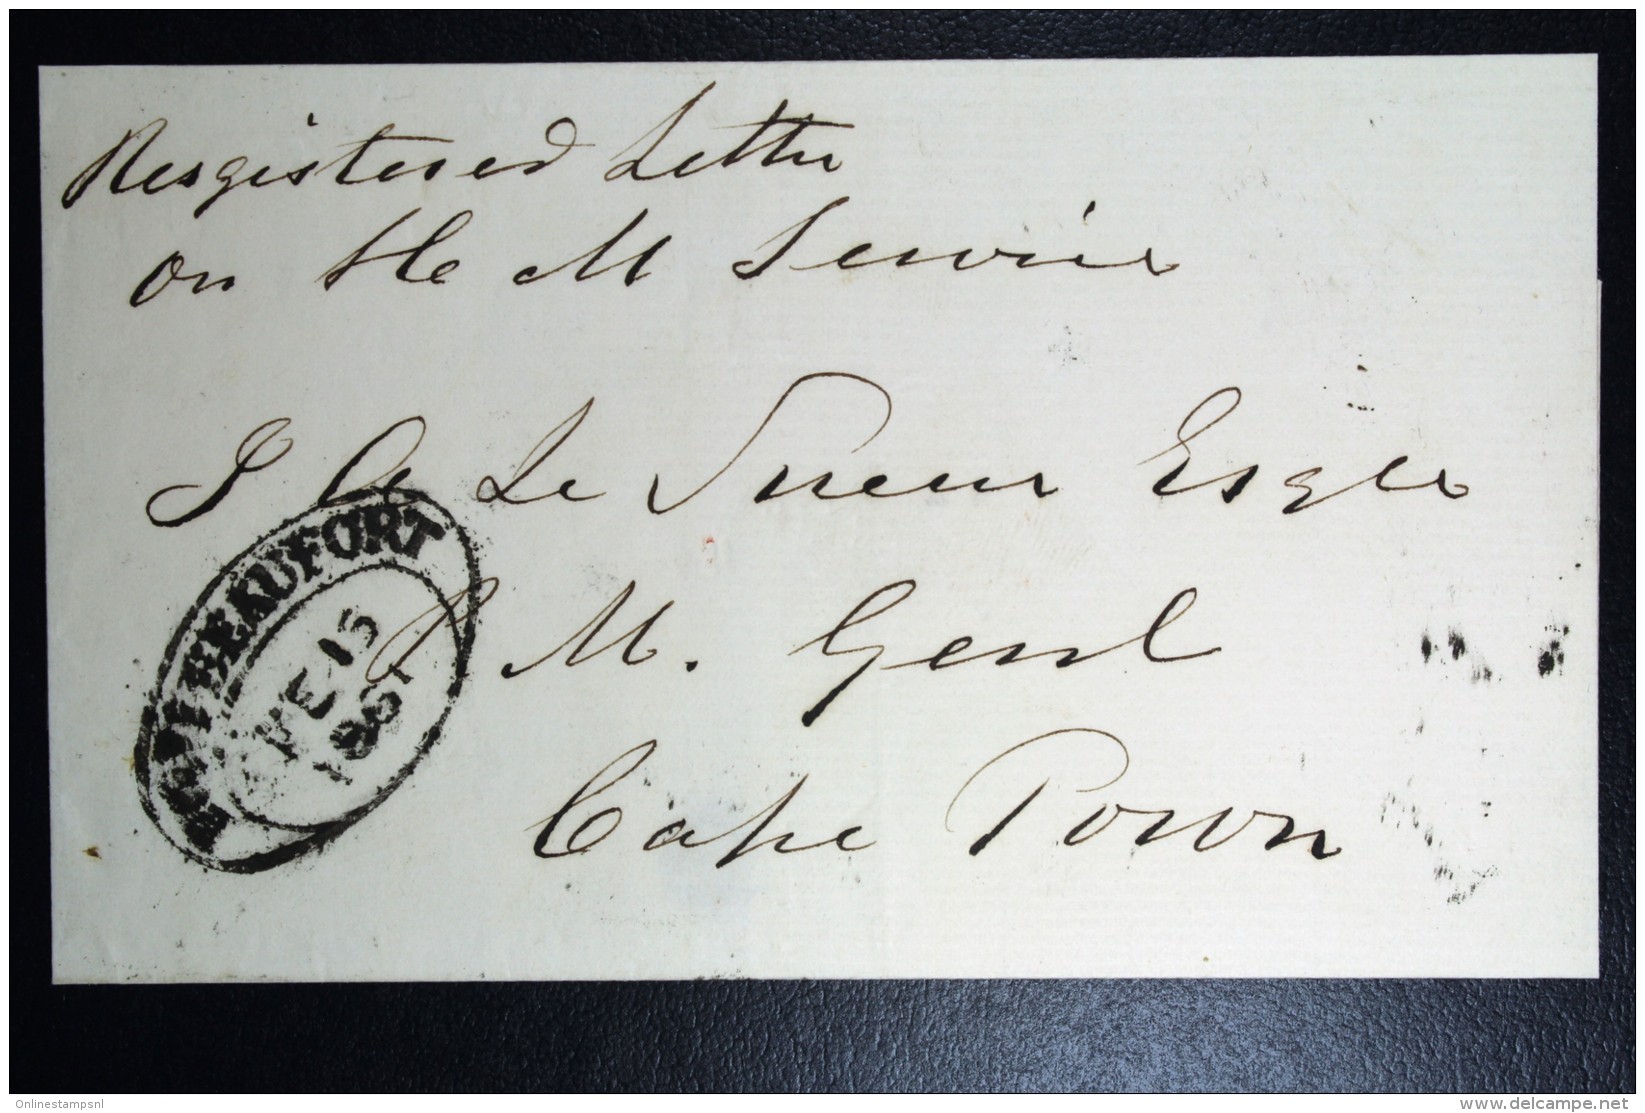 Resgistered Letter
on H M Service
J A Le Sueur Esqre
P M. Genl
Cape Town
BEAUFORT
FE 15
186
Onlinestampsnl
www.delcampe.net